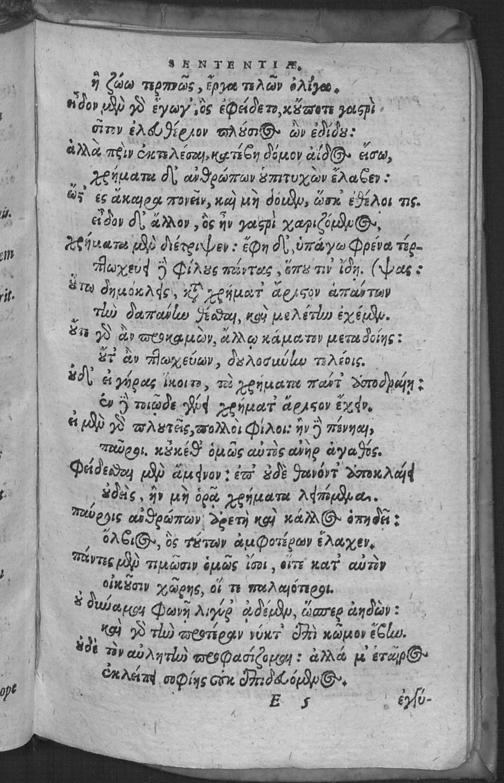 SENTENTIÆ.
ἢ ζώω τερπνῶς, ἔργα τελῶν ὀλίγα.
εἶδον μὲν γὸ ἔγωγ', ὃς ἐφείδετο, κὔποτε γαστρὶ
σῖτον ἐλευθέριον πλύσιος ὢν ἐδίδυ:
ἀλλὰ πρὶν ἐκτελέσαι, κατέβη δόμον ἄϊδος εἴσω,
χρήματα δ' ἀνθρώπων ὑπιτυχὼν ἔλαβεν:
ὥς' ἐς ἄκαιρα πονεῖν, καὶ μὴ δόμεν, ὥσκ' ἐθέλοι τις.
εἶδον δ' ἄλλον, ὃς ἣν γαστρὶ χαριζόμενος,
χρήματα μὲν διέτριψεν: ἔφη δ', ὑπάγω φρένα τέρ-
πτωχεύει δὲ φίλυς πάντας, ὅπυ τιν' ἴδη. (ψας:
ὕτω δημόκλεις, κατὰ χρήματ' ἄριστον ἁπάντων
τὴν δαπάνην θέσθαι, καὶ μελέτην ἐχέμεν.
ὔτε γὸ ἂν προκαμὼν, ἄλλῳ κάματον μεταδοίης:
ὔτ' ἂν πτωχεύων, δυλοσύνην τελέοις.
ὐδ' εἰ γῆρας ἵκοιτο, τὰ χρήματα πάντ' ὑποδραίη:
ἐν δὲ τοιῷδε γένει χρήματ' ἄριστον ἔχειν.
εἰ μὲν γὸ πλυτεῖς, πολλοὶ φίλοι: ἢν δὲ πένηαι,
παῦροι. κὐκέθ' ὁμῶς αὐτὸς ἀνὴρ ἀγαθός.
Φείδεσθαι μὲν ἄμεινον: ἐπ' ὐδὲ θανόντ' ἀποκλαίει
ὐδεὶς, ἢν μὴ ὁρᾷ χρήματα λειπόμενα.
παύροις ἀνθρώπων ἀρετὴ καὶ κάλλος ὀπηδεῖ:
ὄλβιος, ὃς τύτων ἀμφοτέρων ἔλαχεν.
πάντες μὲν τιμῶσιν ὁμῶς ἴσοι, οἵτε κατ' αὐτὸν
οἰκῦσιν χώρης, οἵ τε παλαιότεροι.
ὐ δύναμαι φωνῇ λιγύρ' ᾀδέμεν, ὥσπερ ἀηδών:
καὶ γὸ τὴν προτέραν νύκτ' ἐπὶ κῶμον ἔβην.
ὐδὲ τὸν αὐλητὴν προφασίζομαι: ἀλλά μ' ἑταῖρος
ἐκλείπει σοφίης οὐκ ἐπιδευόμενος.
E 5 ἐγγύ-